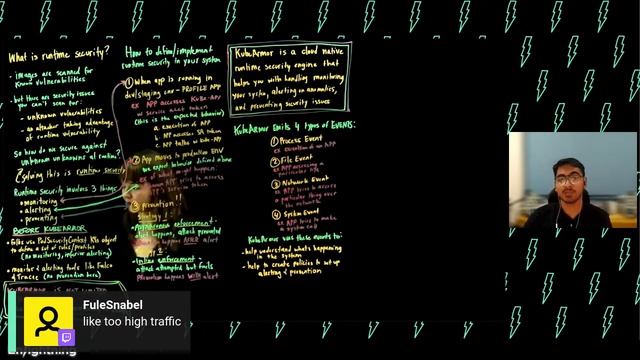 What is runtime security?
- images are scanned for
known vulnerabilities
- but there are security issues
you can't scan for:
- unknown vulnerabilities
- an attacker taking advantage
of runtime vulnerability
So how do we secure against
unknown unknowns at runtime?
solving this is runtime security
Runtime security involves 3 things:
- monitoring
- alerting
- preventing
BEFORE KUBEARMOR
PodSecurityContext K8s object
to define a set of rules/profiles
(no monitoring, inferior alerting)
- monitor & alerting tools like Falco
& Tracee (no prevention here)
How to define/implement
runtime security in your system
① When app is running in
dev/staging env - PROFILE APP
ex APP accesses KUBE-API
w service acct token
(this is the expected behavior)
a. execution of APP
b. APP accesses SA token
c. APP talks w Kube-API
② App moves to production ENV
we expect behavior defined above
ex of what might happen:
tries to access
token
③ Prevention!!
Strategy 1:
enforcement -
alert happens, attack prevented
happens AFTER alert
2:
Inline enforcement -
attack attempted but fails
Prevention happens WITH alert
KubeArmor is a cloud native
runtime security engine that
helps you with handling monitoring
your system, alerting on anomalies,
and preventing security issues
KubeArmor Emits 4 types of EVENTS:
① Process Event
ex execution of an APP
② File Event
ex APP accessing a
particular file
③ Network Event
ex APP tries to access
a particular thing over
the network
④ System Event
ex APP tries to make
a system call
KubeArmor uses these events to:
- help understand what's happening
in the system
- help to create policies to set up
alerting & prevention
FuleSnabel
like too high traffic